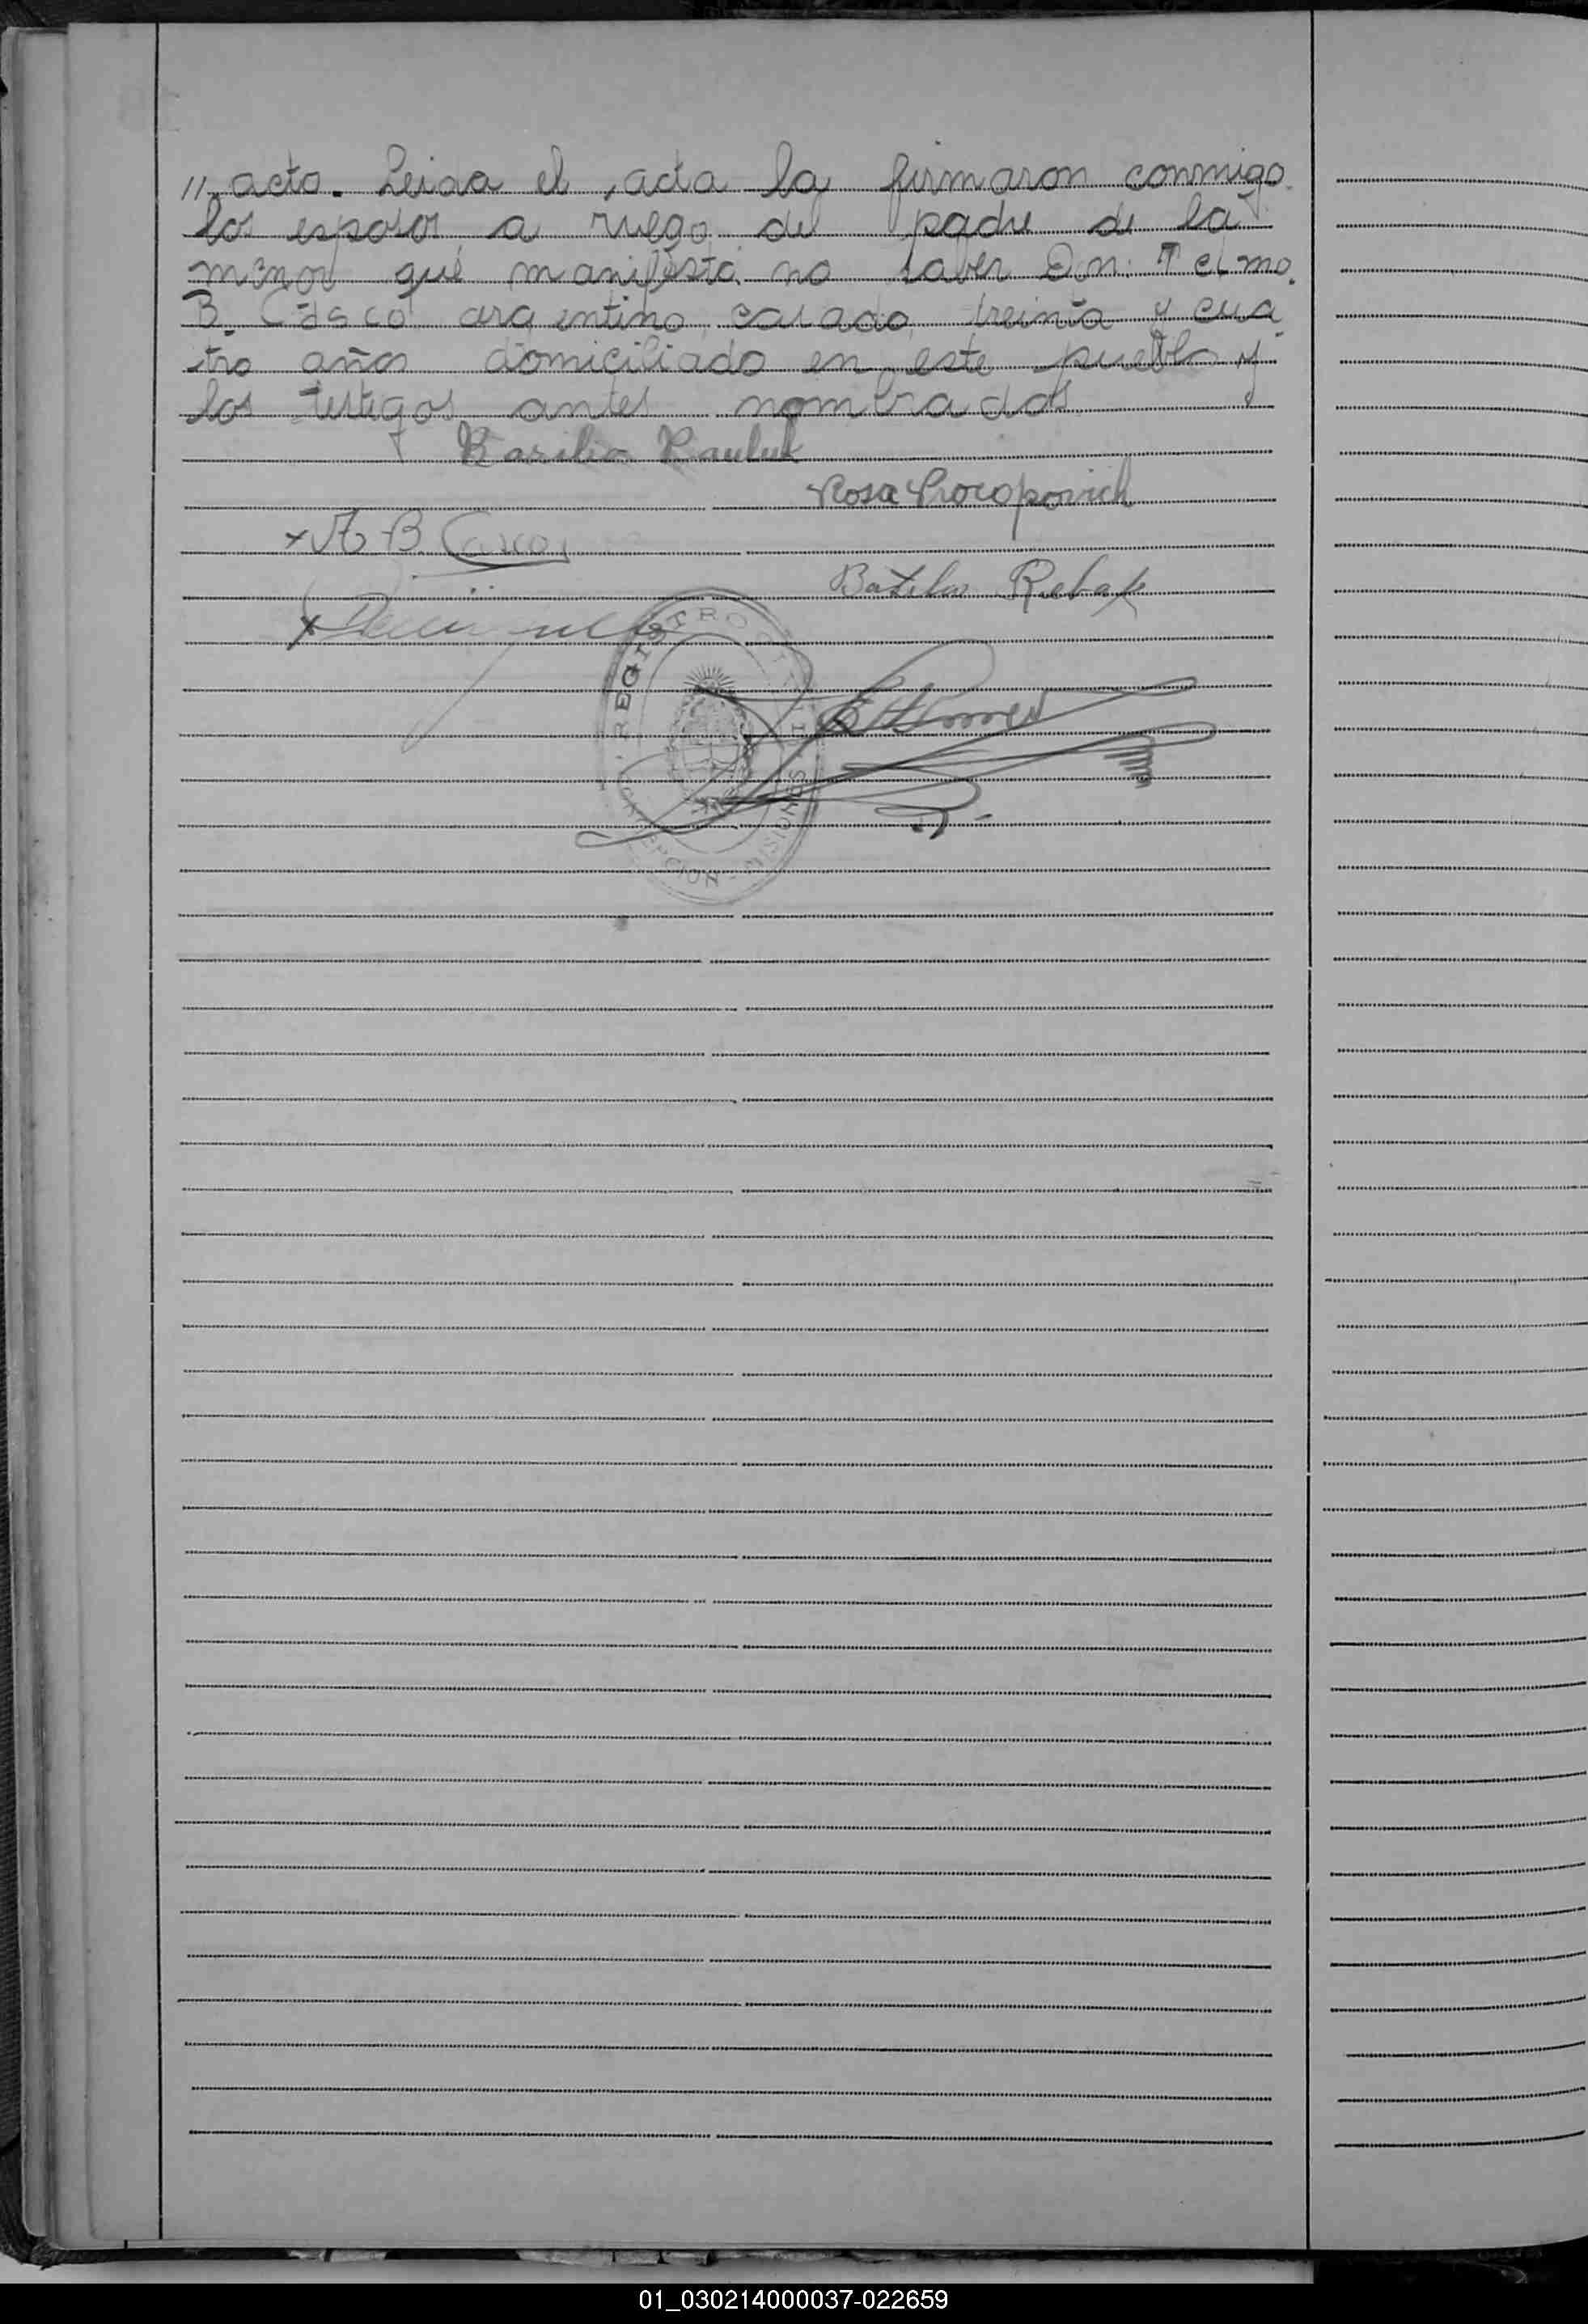 11 acto. Leida el acta la firmaron conmigo
los esposos, a ruego del padre de la
menor que manifestó no saber Dn. Telmo
B. Casco argentino, casado, treinta y cua
tro años domiciliado en este pueblo y
los testigos antes nombrados
Basilio Pauluk
Rosa Procopovich
B. Casco
Basilio Rebak
REGISTRO CIVIL
CONCEPCION - MISIONES
01_030214000037-022659